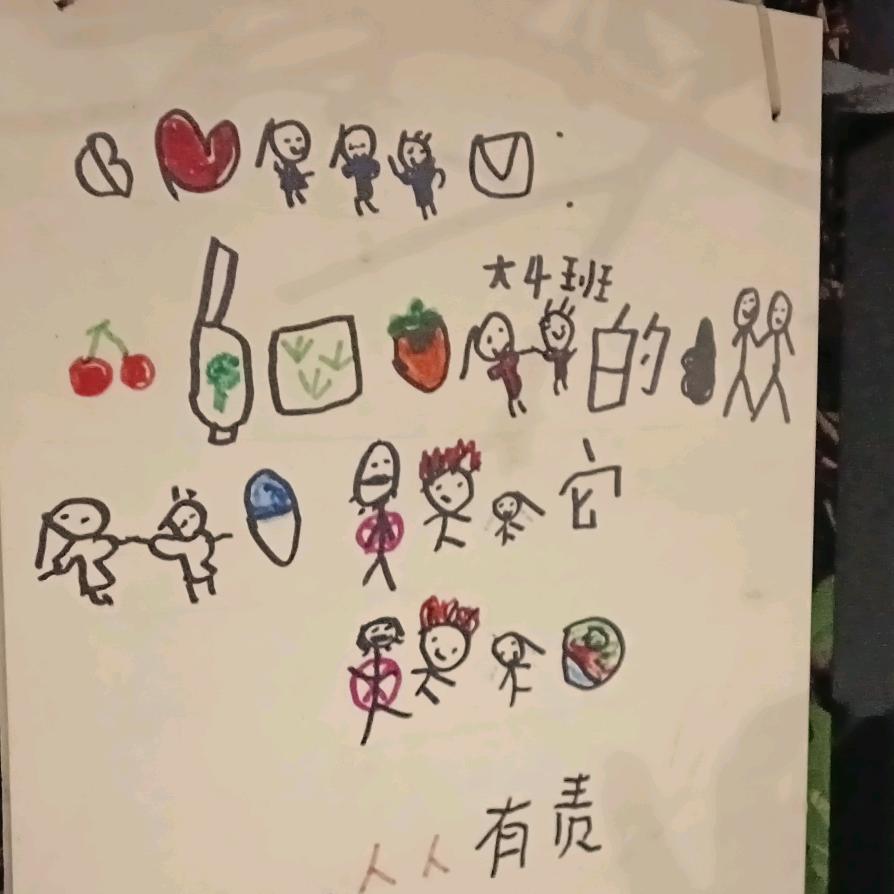 :
大4班
的
它
人人有责